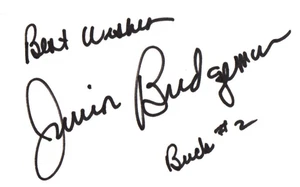 Best Wishes
Junior Bridgeman
Buck #2